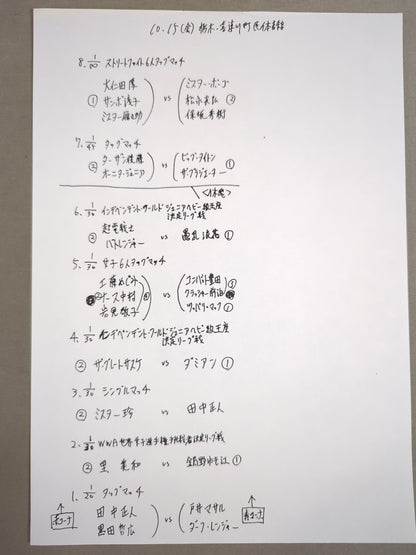 10.15(金) 栃木・
8. 1/60 ストリートファイト6人タッグマッチ
大仁田厚 ミスター・ポーゴ
① サンボ浅子 vs 松永光弘 ③
ミスター雁之助 保坂秀樹
7. 1/45 タッグマッチ
② ターザン後藤 vs ビッグ・タイトン ①
ホーニダージュニア ザ・グラジエーター
<休憩>
6. 1/30 インディペンデント・ワールドジュニアヘビー級王座
決定リーグ戦
② 超電戦士 vs ①
バトレンジャー
5. 1/30 女子6人タッグマッチ
工藤めぐみ コンバット豊田 ①
② ナース中村 ④ vs クラッシャー前泊
岩見敬子 ソッパリ・マック ①
4. 1/30 インディペンデント・ワールドジュニアヘビー級王座
決定リーグ戦
② ザ・グレートサスケ vs ダミアン ①
3. 1/30 シングルマッチ
② ミスター珍 vs 田中正人
2. 1/30 WWA世界女子選手権予決定リーグ戦
② 里美和 vs 鍋野ゆき江 ①
1. 1/20 タッグマッチ
田中正人 vs 戸井マサル
黒田哲広 ダーク・レンジャー
赤コーナー 青コーナー